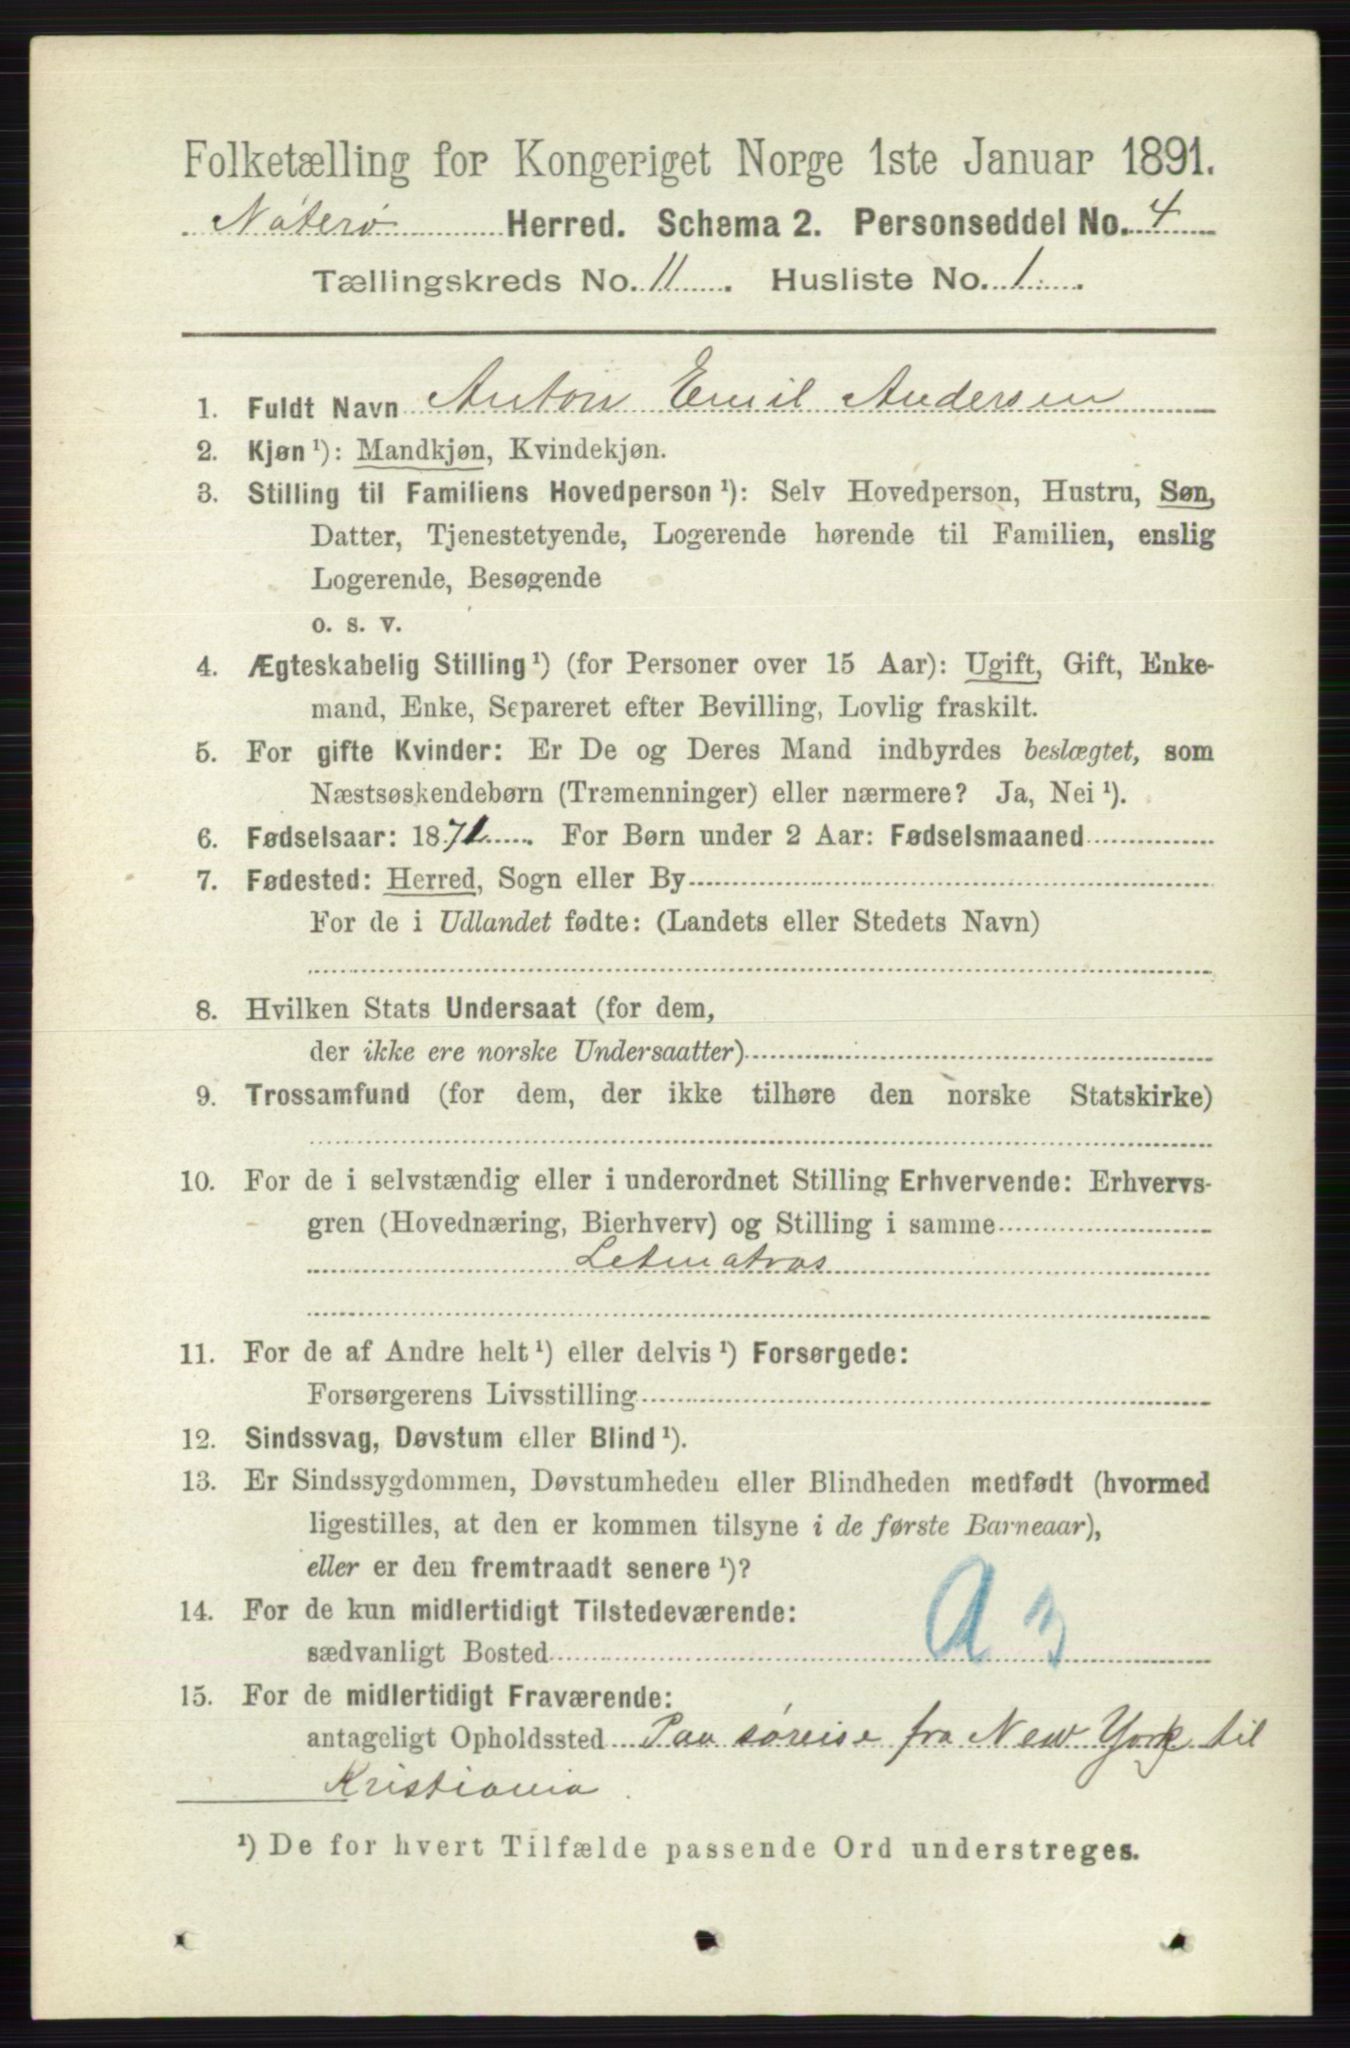 Folketælling for Kongeriget Norge 1ste Januar 1891.
Nøterø Herred. Schema 2. Personseddel No. 4
Tællingskreds No. 11. Husliste No. 1.
1. Fuldt Navn Anton Emil Andersen
2. Kjøn ¹): Mandkjøn, Kvindekjøn.
3. Stilling til Familiens Hovedperson ¹): Selv Hovedperson, Hustru, Søn,
Datter, Tjenestetyende, Logerende hørende til Familien, enslig
Logerende, Besøgende
o. s. v.
4. Ægteskabelig Stilling ¹) (for Personer over 15 Aar): Ugift, Gift, Enke-
mand, Enke, Separeret efter Bevilling, Lovlig fraskilt.
5. For gifte Kvinder: Er De og Deres Mand indbyrdes beslægtet, som
Næstsøskendebørn (Tremenninger) eller nærmere? Ja, Nei ¹).
6. Fødselsaar: 1871. For Børn under 2 Aar: Fødselsmaaned
7. Fødested: Herred, Sogn eller By
For de i Udlandet fødte: (Landets eller Stedets Navn)
8. Hvilken Stats Undersaat (for dem,
der ikke ere norske Undersaatter)
9. Trossamfund (for dem, der ikke tilhøre den norske Statskirke)
10. For de i selvstændig eller i underordnet Stilling Erhvervende: Erhvervs-
gren (Hovednæring, Bierhverv) og Stilling i samme
Letmatros
11. For de af Andre helt ¹) eller delvis ¹) Forsørgede:
Forsørgerens Livsstilling
12. Sindssvag, Døvstum eller Blind ¹).
13. Er Sindssygdommen, Døvstumheden eller Blindheden medfødt (hvormed
ligestilles, at den er kommen tilsyne i de første Barneaar),
eller er den fremtraadt senere ¹)?
14. For de kun midlertidigt Tilstedeværende:
sædvanligt Bosted
A 3
15. For de midlertidigt Fraværende:
antageligt Opholdssted Paa søreise fra New York til
Kristiania.
¹) De for hvert Tilfælde passende Ord understreges.